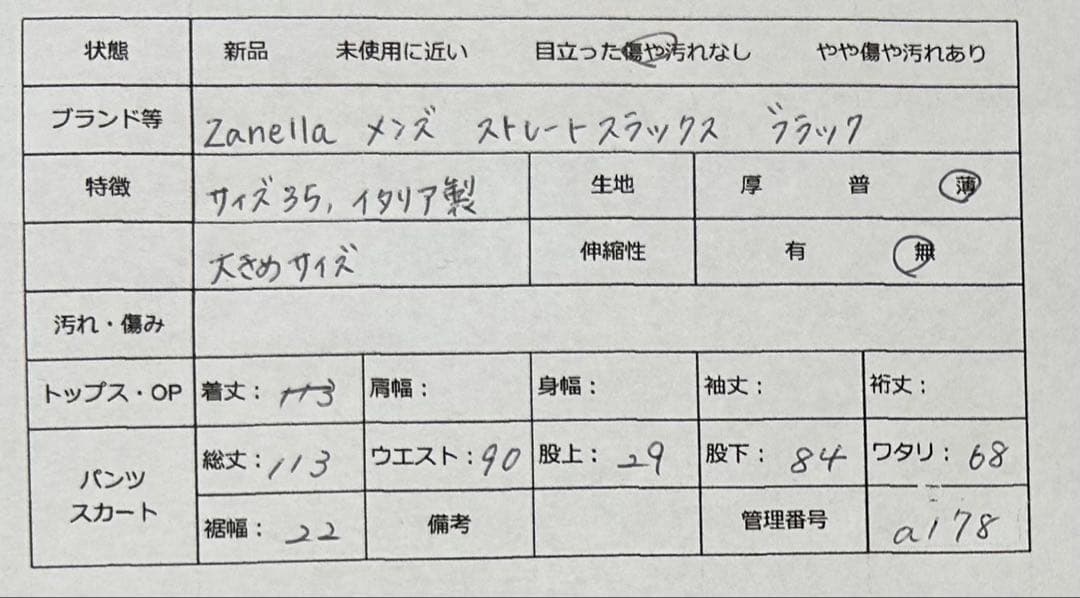 状態 新品 未使用に近い 目立った傷や汚れなし やや傷や汚れあり
ブランド等 Zanella メンズ ストレートスラックス ブラック
特徴 サイズ35, イタリア製 生地 厚 普 薄
大きめサイズ 伸縮性 有 無
汚れ・傷み
トップス・OP 着丈: 113 肩幅: 身幅: 袖丈: 裄丈:
パンツ スカート
総丈: 113 ウエスト: 90 股上: 29 股下: 84 ワタリ: 68
裾幅: 22 備考 管理番号 a178